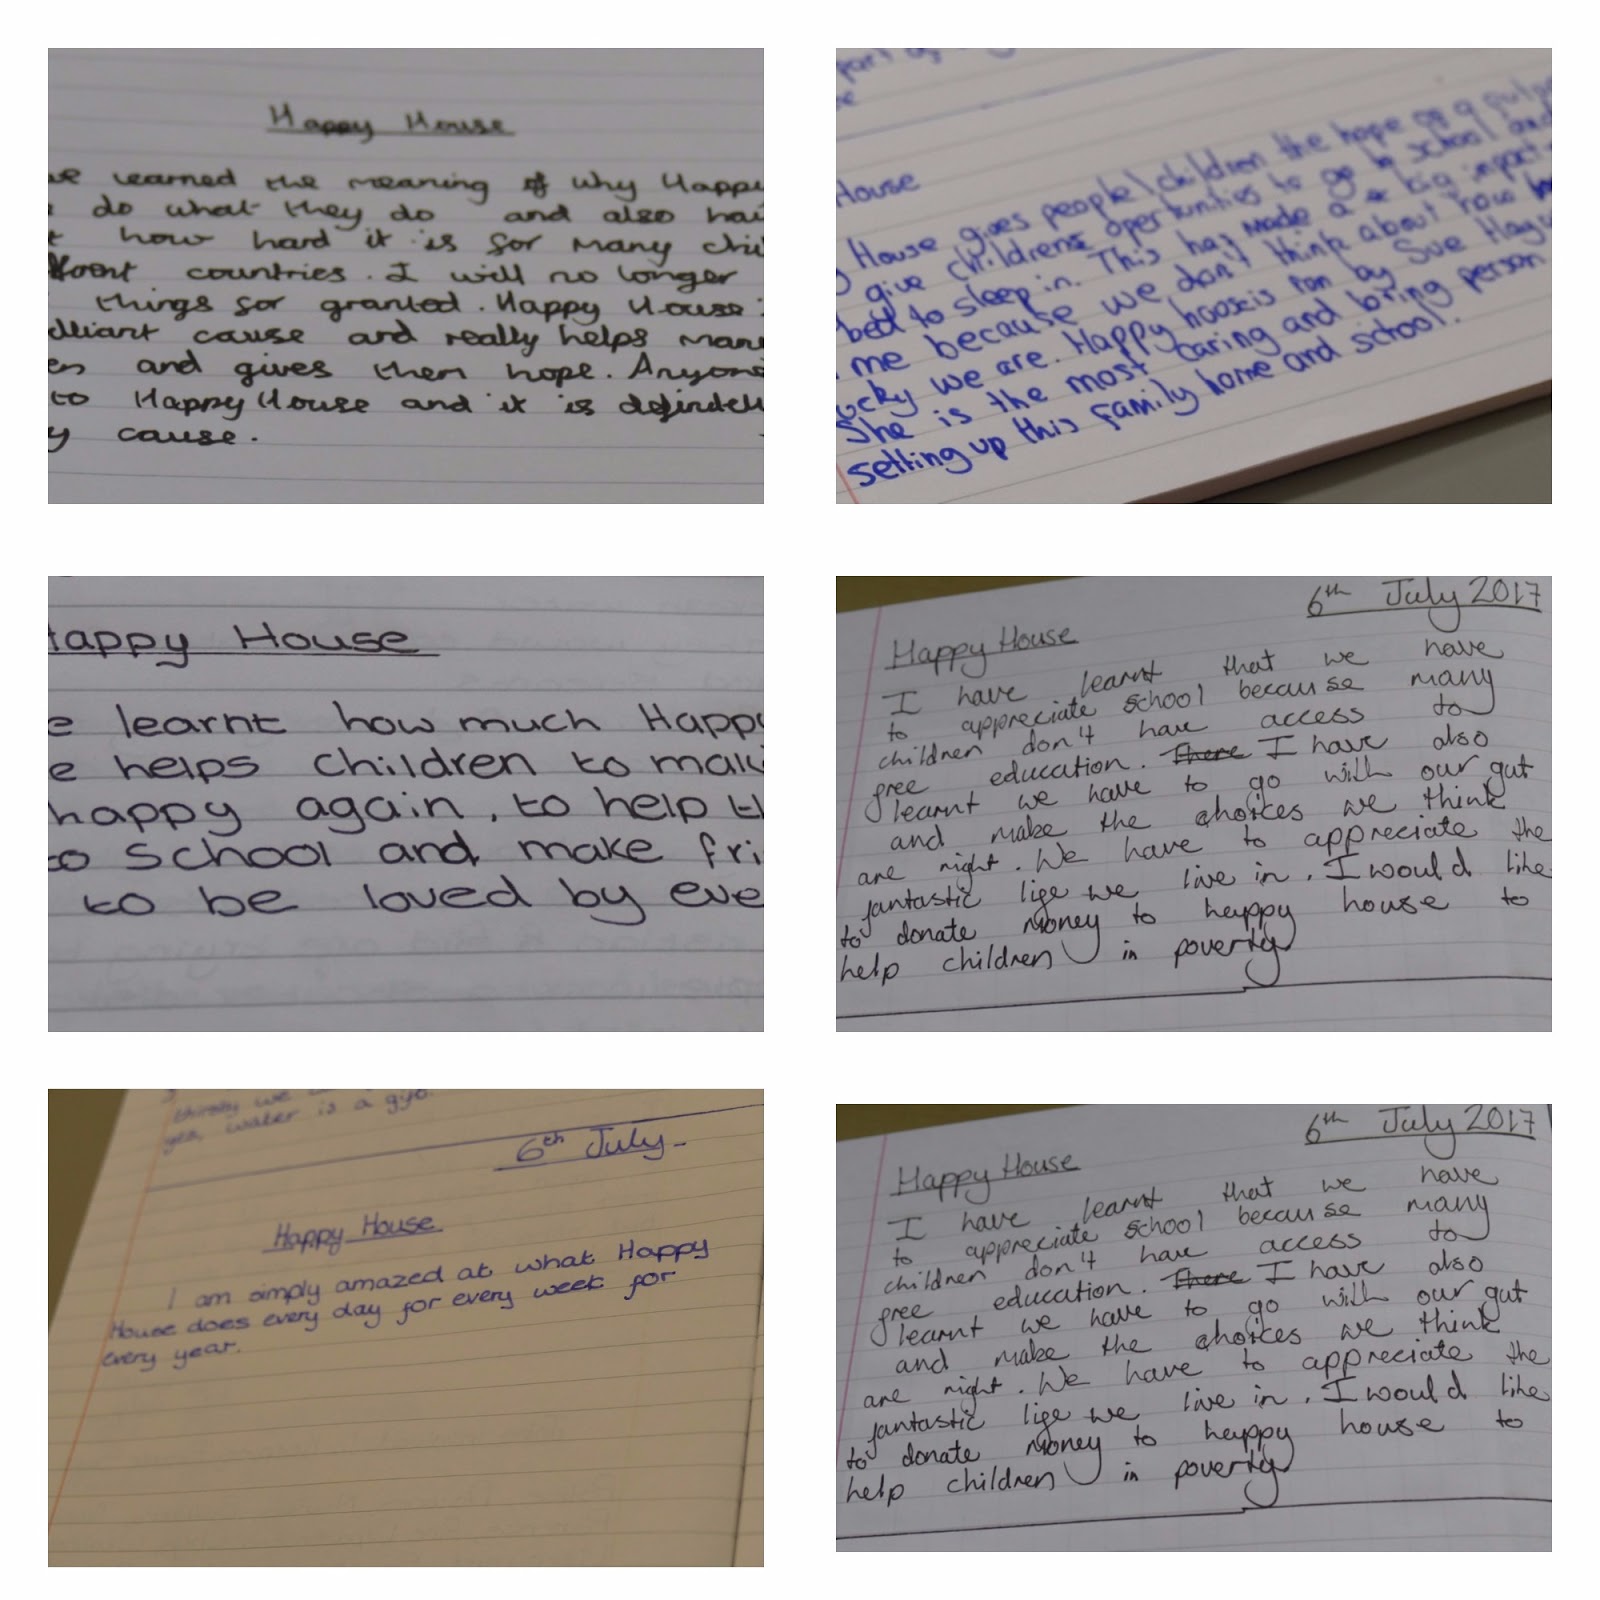 Happy House
we learned the meaning of why Happy
do what they do and also
how hard it is for many
countries. I will no longer
things for granted. Happy House
cause and really helps
and gives them hope.
to Happy House and it is
cause.
part
House
House gives people/children the hope of a
give childrens oppertunities to go to school and
bed to sleep in. This has made a big impact
me because we don't think about how
we are. Happy house is ran by Sue
She is the most caring and loving person
setting up this family home and school.
Happy House
learnt how much Happy
helps children to
happy again, to help
to school and make
to be loved by
6th July 2017
Happy House
I have learnt that we have
to appreciate school because many
children don't have access to
free education. There I have also
learnt we have to go with our gut
and make the choices we think
are right. We have to appreciate the
fantastic life we live in. I would like
to donate money to happy house to
help children in poverty
thirsty we
yes, water is a
6th July
Happy House
I am simply amazed at what Happy
House does every day for every week for
every year.
6th July 2017
Happy House
I have learnt that we have
to appreciate school because many
children don't have access to
free education. There I have also
learnt we have to go with our gut
and make the choices we think
are right. We have to appreciate the
fantastic life we live in. I would like
to donate money to happy house to
help children in poverty